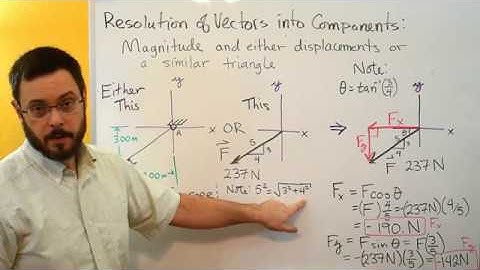 Resolution of Vectors into Components:
Magnitude and either displacements or
a similar triangle
Note:
θ = tan⁻¹(3/4)
Either
This
y
x
A
300m
400m
OR
This
y
x
5
3
4
F
237N
Note: 5² = √3²+4²
⇒
y
x
Fx
Fy
θ
5
3
4
F
237N
Fx = F cos θ
= (F) 4/5 = (237N)(4/5)
= -190. N Fx
Fy = F sin θ = F(3/5)
= -(237N)(3/5) = -142N